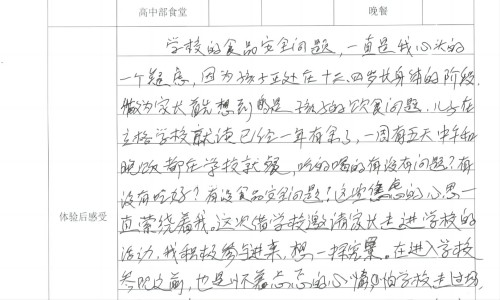 高中部食堂 晚餐
体验后感受
学校的食品安全问题，一直是我心头的
一个疑虑，因为孩子正处在十三四岁长身体的阶段，
做为家长首先想到的是孩子的饮食问题，儿子在
立格学校就读已经一年有余了，一周有五天中午和
晚饭都在学校就餐，吃的喝的有没有问题？有
没有吃好？有没食品安全问题？这些焦虑的心思一
直萦绕着我。这次借学校邀请家长走进学校的
活动，我积极参与进来，想一探究竟。在进入学校
参观之前，也是怀着忐忑的心情，怕学校走过场，